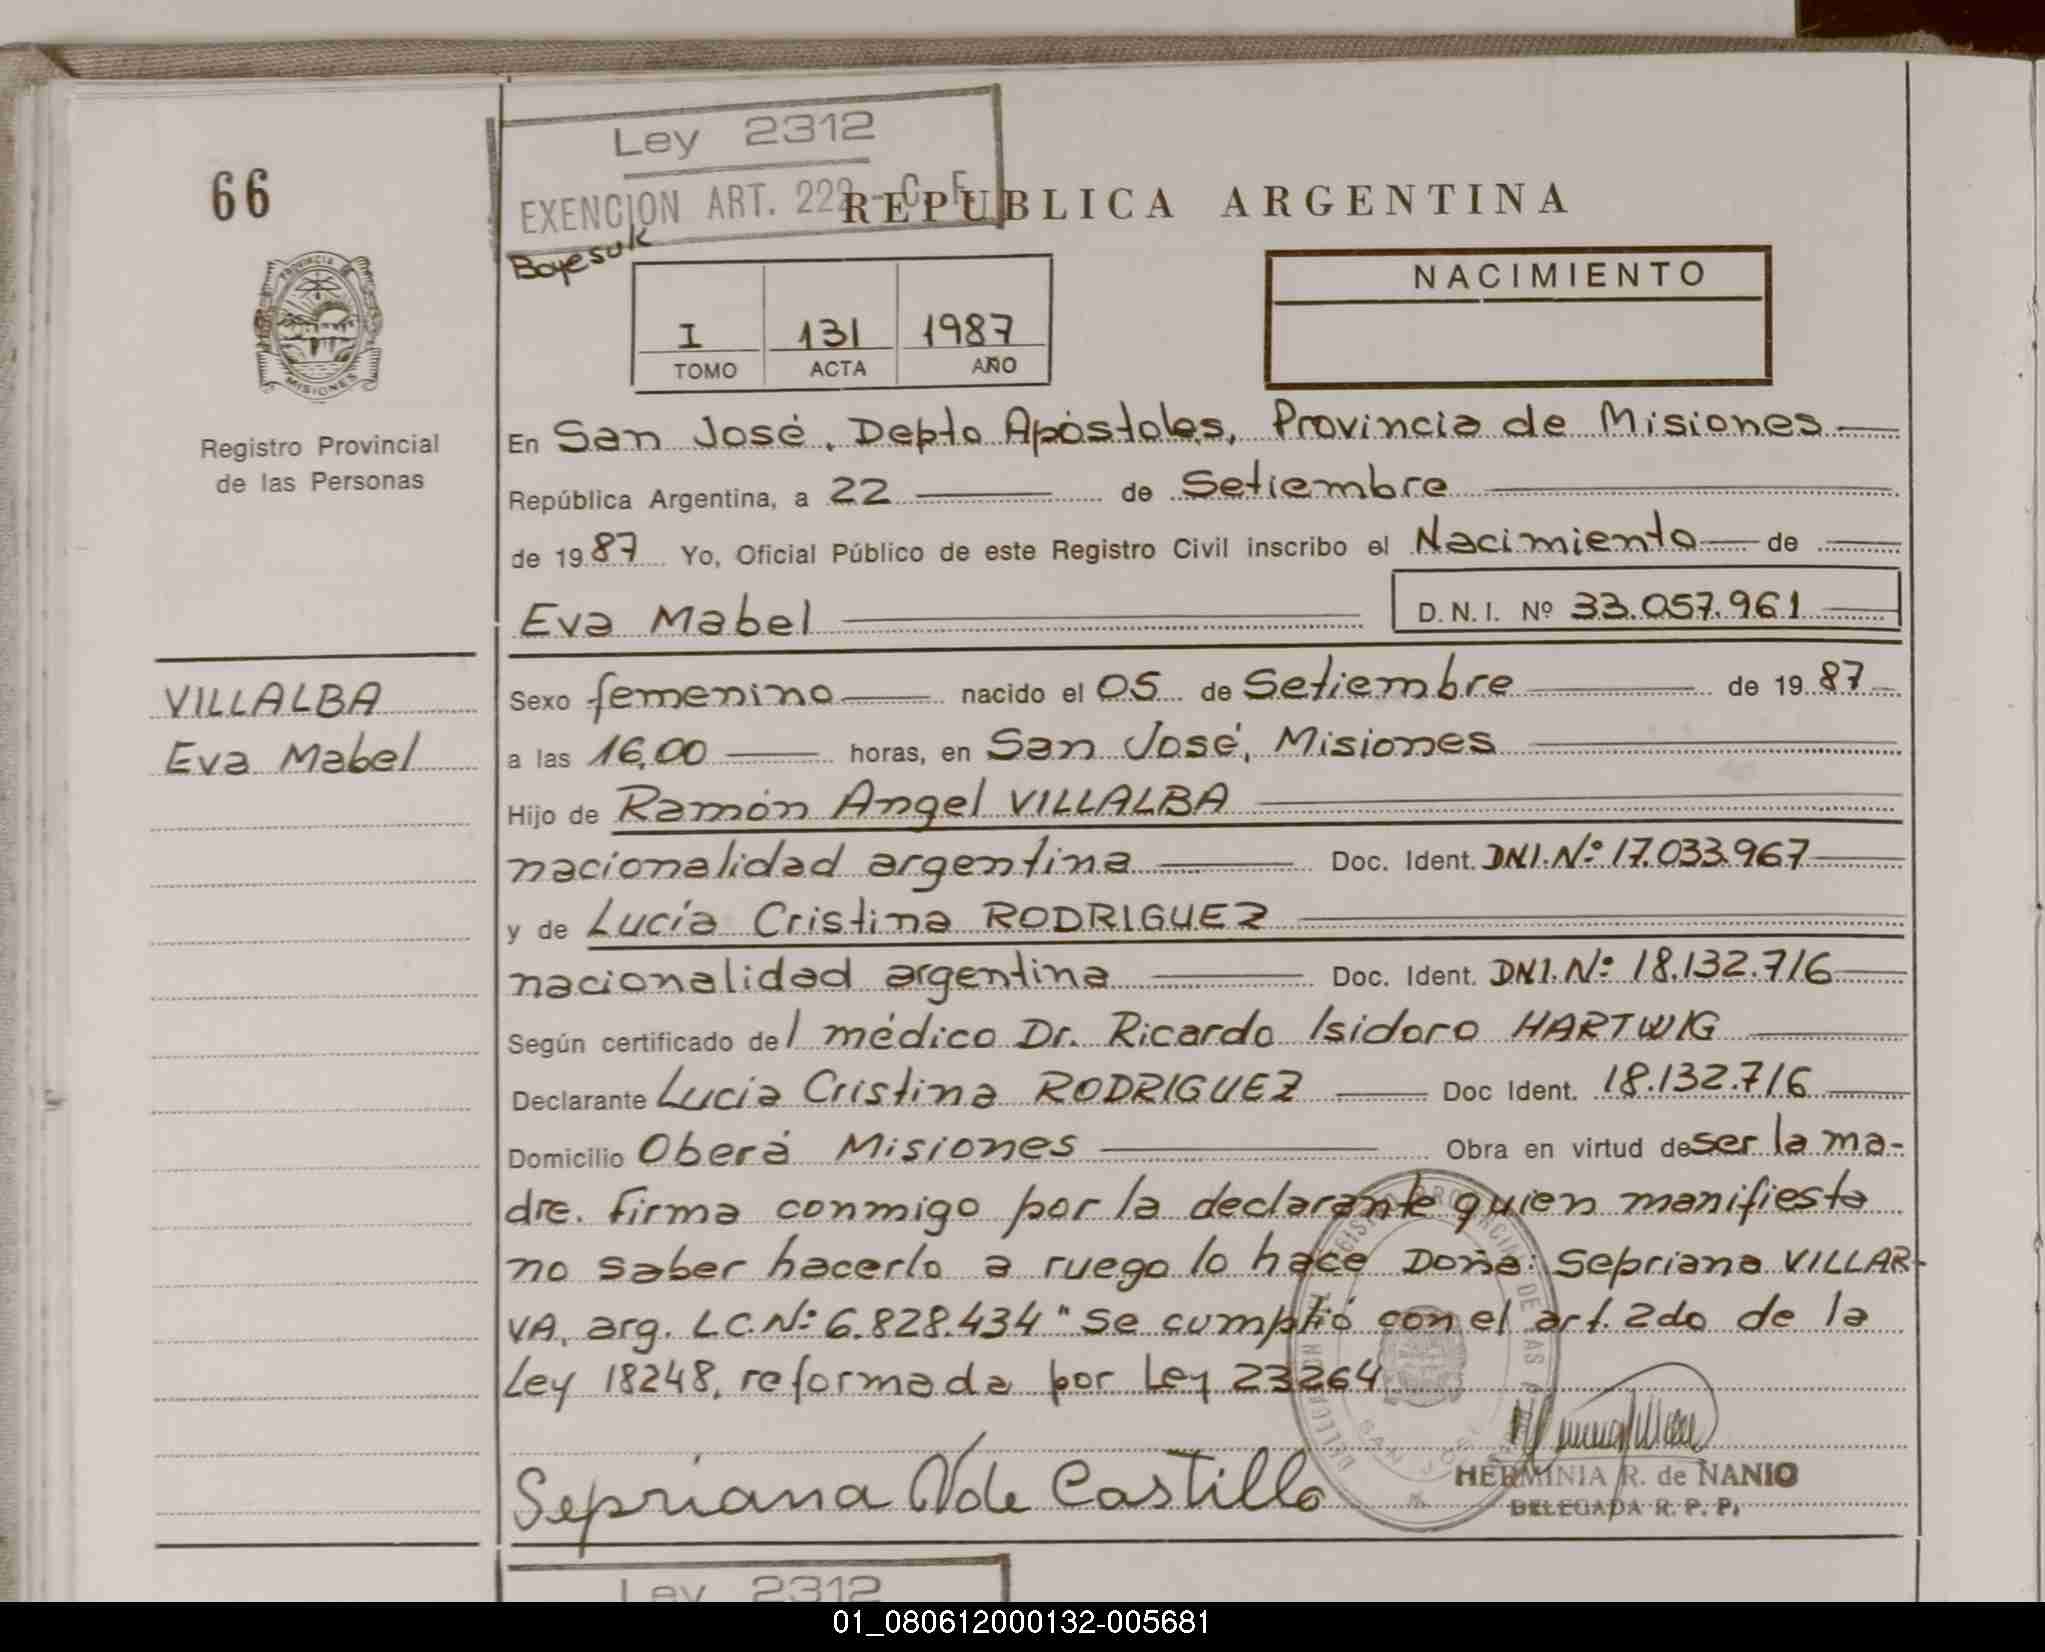 66
Ley 2312
EXENCION ART. 222 - C. F.
REPUBLICA ARGENTINA
Boyesuk
NACIMIENTO
I 131 1987
TOMO ACTA AÑO
PROVINCIA DE
MISIONES
Registro Provincial
de las Personas
En San José, Depto Apóstoles, Provincia de Misiones
República Argentina, a 22 de Setiembre
de 1987 Yo, Oficial Público de este Registro Civil inscribo el Nacimiento de
Eva Mabel D.N.I. Nº 33.057.961
VILLALBA
Eva Mabel
Sexo femenino nacido el 05 de Setiembre de 1987
a las 16,00 horas, en San José, Misiones
Hijo de Ramón Angel VILLALBA
nacionalidad argentina Doc. Ident. DNI. Nº 17.033.967
y de Lucía Cristina RODRIGUEZ
nacionalidad argentina Doc. Ident. DNI. Nº 18.132.716
Según certificado del médico Dr. Ricardo Isidoro HARTWIG
Declarante Lucia Cristina RODRIGUEZ Doc Ident. 18.132.716
Domicilio Oberá Misiones Obra en virtud de ser la ma-
dre. Firma conmigo por la declarante quien manifiesta
no saber hacerlo a ruego lo hace Doña: Sepriana VILLAR-
VA, arg. LC. Nº 6.828.434 " Se cumplió con el art. 2do de la
Ley 18248, reformada por Ley 23264
Sepriana V de Castillo
HERMINIA R. de NANIO
DELEGADA R. P. P.
Ley 2312
01_080612000132-005681